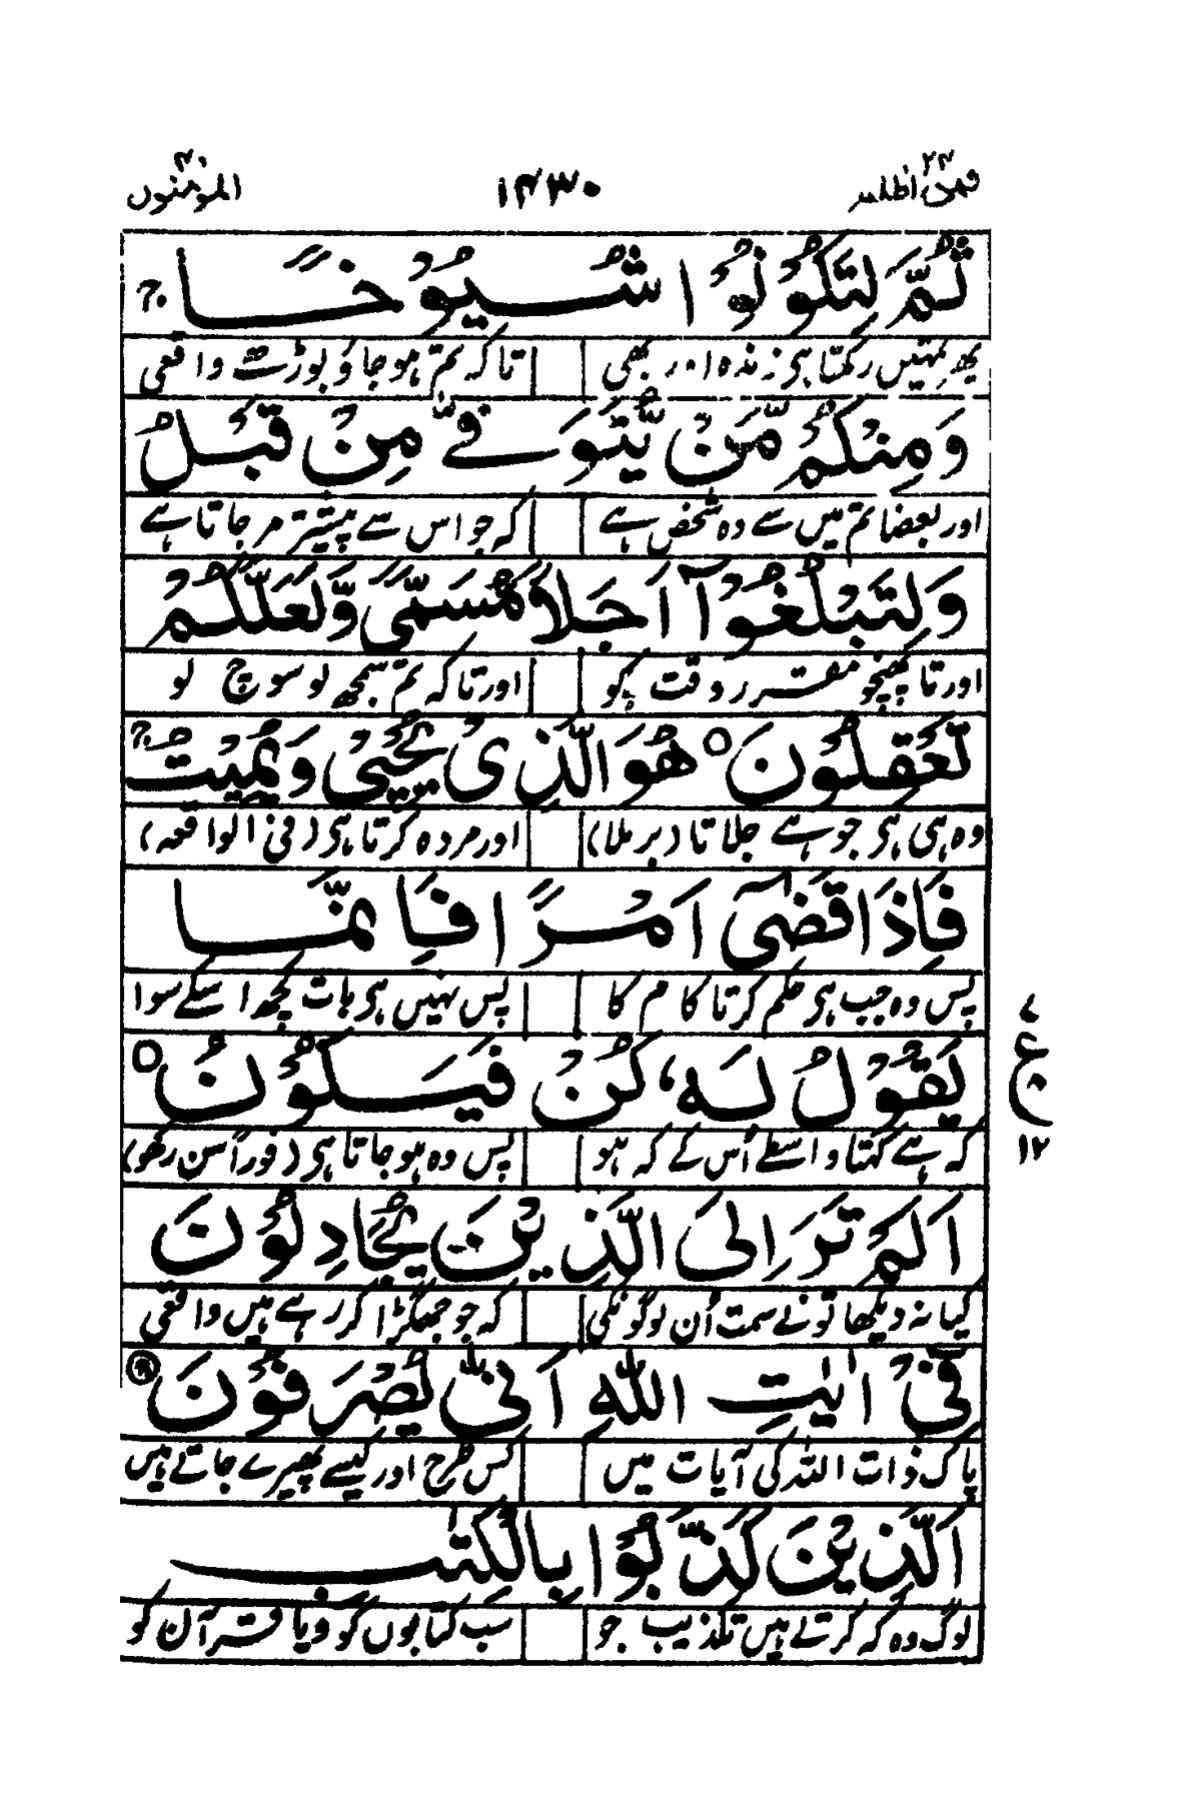 فمن اظلم ۲۴ ۱۴۳۰ المؤمنون ۴۰
ثُمَّ لِتَكُوْنُوْا شُيُوْخًا ۚ
پھر تمہیں رکھتا ہی زندہ اور بھی تا کہ تم ہو جاؤ بوڑھے واقعی
وَمِنْكُمْ مَّنْ يُّتَوَفّٰى مِنْ قَبْلُ
اور بعضا تم میں سے وہ شخص ہے کہ جو اس سے پیشتر مر جاتا ہے
وَلِتَبْلُغُوْۤا اَجَلًا مُّسَمًّى وَّلَعَلَّكُمْ
اور تا پھنچو مقرر وقت کو اور تا کہ تم سمجھ لو سوچ لو
تَعْقِلُوْنَ ○ هُوَ الَّذِىْ يُحْيٖى وَيُمِيْتُ ۚ
وہ ہی ہی جو ہے جلاتا (برملا) اور مردہ کرتا ہی (فی الواقعہ)
فَاِذَا قَضٰۤى اَمْرًا فَاِنَّمَا
پس وہ جب ہی حکم کرتا کام کا پس نہیں ہی بات کچھ اسکے سوا
يَقُوْلُ لَهٗ كُنْ فَيَكُوْنُ ○
کہ ہے کہتا واسطے اُس کے کہ ہو پس وہ ہو جاتا ہی (فوراً سن رکھو)
ے ع ۱۲
اَلَمْ تَرَ اِلَى الَّذِيْنَ يُجَادِلُوْنَ
کیا نہ دیکھا تو نے سمت اُن لوگونکی کہ جو جھگڑا کر رہے ہیں واقعی
فِىْۤ اٰيٰتِ اللّٰهِ اَنّٰى يُصْرَفُوْنَ
پاک ذات اللہ کی آیات میں کس طرح اور کیسے پھیرے جاتے ہیں
اَلَّذِيْنَ كَذَّبُوْا بِالْكِتٰبِ
لوگ وہ کہ کرتے ہیں تکذیب جو سب کتابوں کو و یا قرآن کو